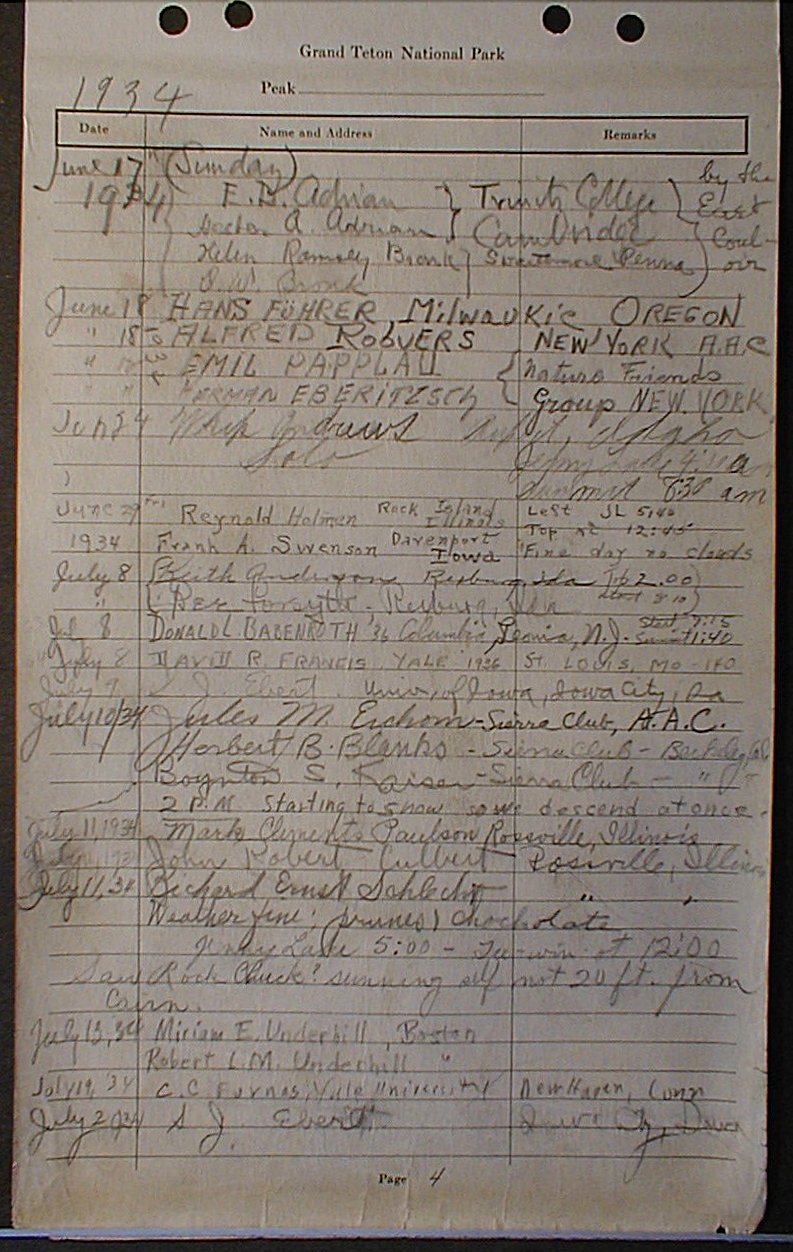 Grand Teton National Park
1934 Peak
Date Name and Address Remarks
June 17 (Sunday) by the
1934 E. D. Adrian Trinity College East
Hester A. Adrian Cambridge Coul-
Helen Ramsey Bronk Swarthmore Penna oir
D. W. Bronk
June 18 HANS FÜHRER MilwauKie OREGON
" 18 ALFRED RObVERS NEW YORK A.A.C
" EMIL PAPPLAU Nature Friends
" " HERMAN EBERITZSCH Group NEW YORK
Jun 24 Whip Andrews
Solo Jenny Lake
Summit 8:30 am
June 29 Fri Reynold Holmen Rock Island Illinois Left JL 5:40
Top at 12:45
1934 Frank A. Swenson Davenport Iowa "Fine day no clouds
July 8 Keith Anderson Rexburg, Ida 2.00
" Forsyth, Rexburg, Ida start 8 10
Jul 8 DONALD L BABENROTH '36 Columbia, Leonia, N.J. - Start 7:15 Summit 11:40
July 8 DAVID R. FRANCIS YALE ST. LOUIS, MO - 140
July 9 S J. Ebert. Univ. of Iowa, Iowa City, Ia
July 10/34 Jules M. Eichorn - Sierra Club, A.A.C.
Herbert B. Blanks - Sierra Club - Berkeley Cal
Boynton S. Kaiser - Sierra Club - " "
2 P.M. Starting to snow so we descend at once.
July 11, 1934 Mark Clements Paulson Rossville, Illinois
July 11, 1934 John Robert Culbert Rossville, Illinois
July 11, 34 Richard Ernst Schlecht " "
Weather fine; prunes & chocholate
Jenny Lake 5:00 - Tee-win at 12:00
Saw Rock Chuck? sunning self not 20 ft. from
Cairn.
July 13, 34 Miriam E. Underhill, Boston
Robert L.M. Underhill "
July 19, '34 C.C Furnas Yale University New Haven, Conn
July 2 S J. Ebert Iowa City, Iowa
Page 4